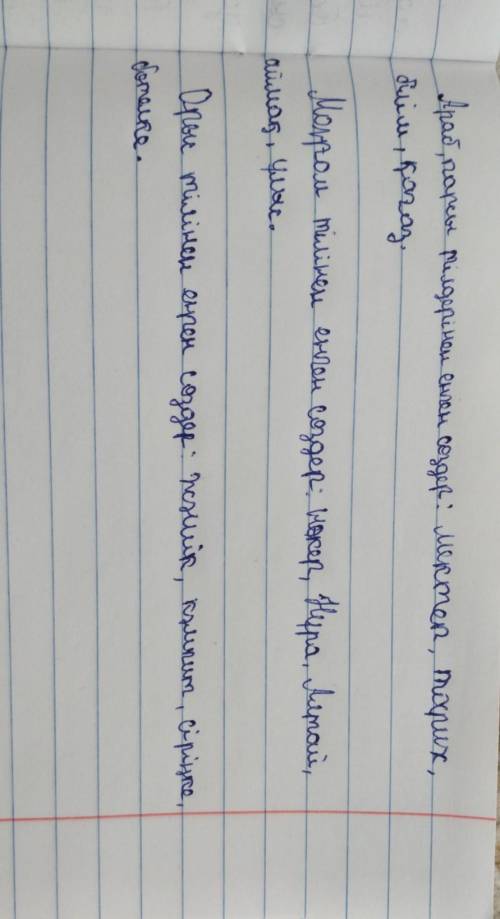 Араб, парсы тілдерінен енген сөздер: мектеп, тарих,
білім, қағаз.
Моңғол тілінен енген сөздер: нөкер, Нұра, Алтай,
аймақ, ұлыс.
Орыс тілінен енген сөздер: жәшік, кәмпит, сіріңке,
бөтелке.